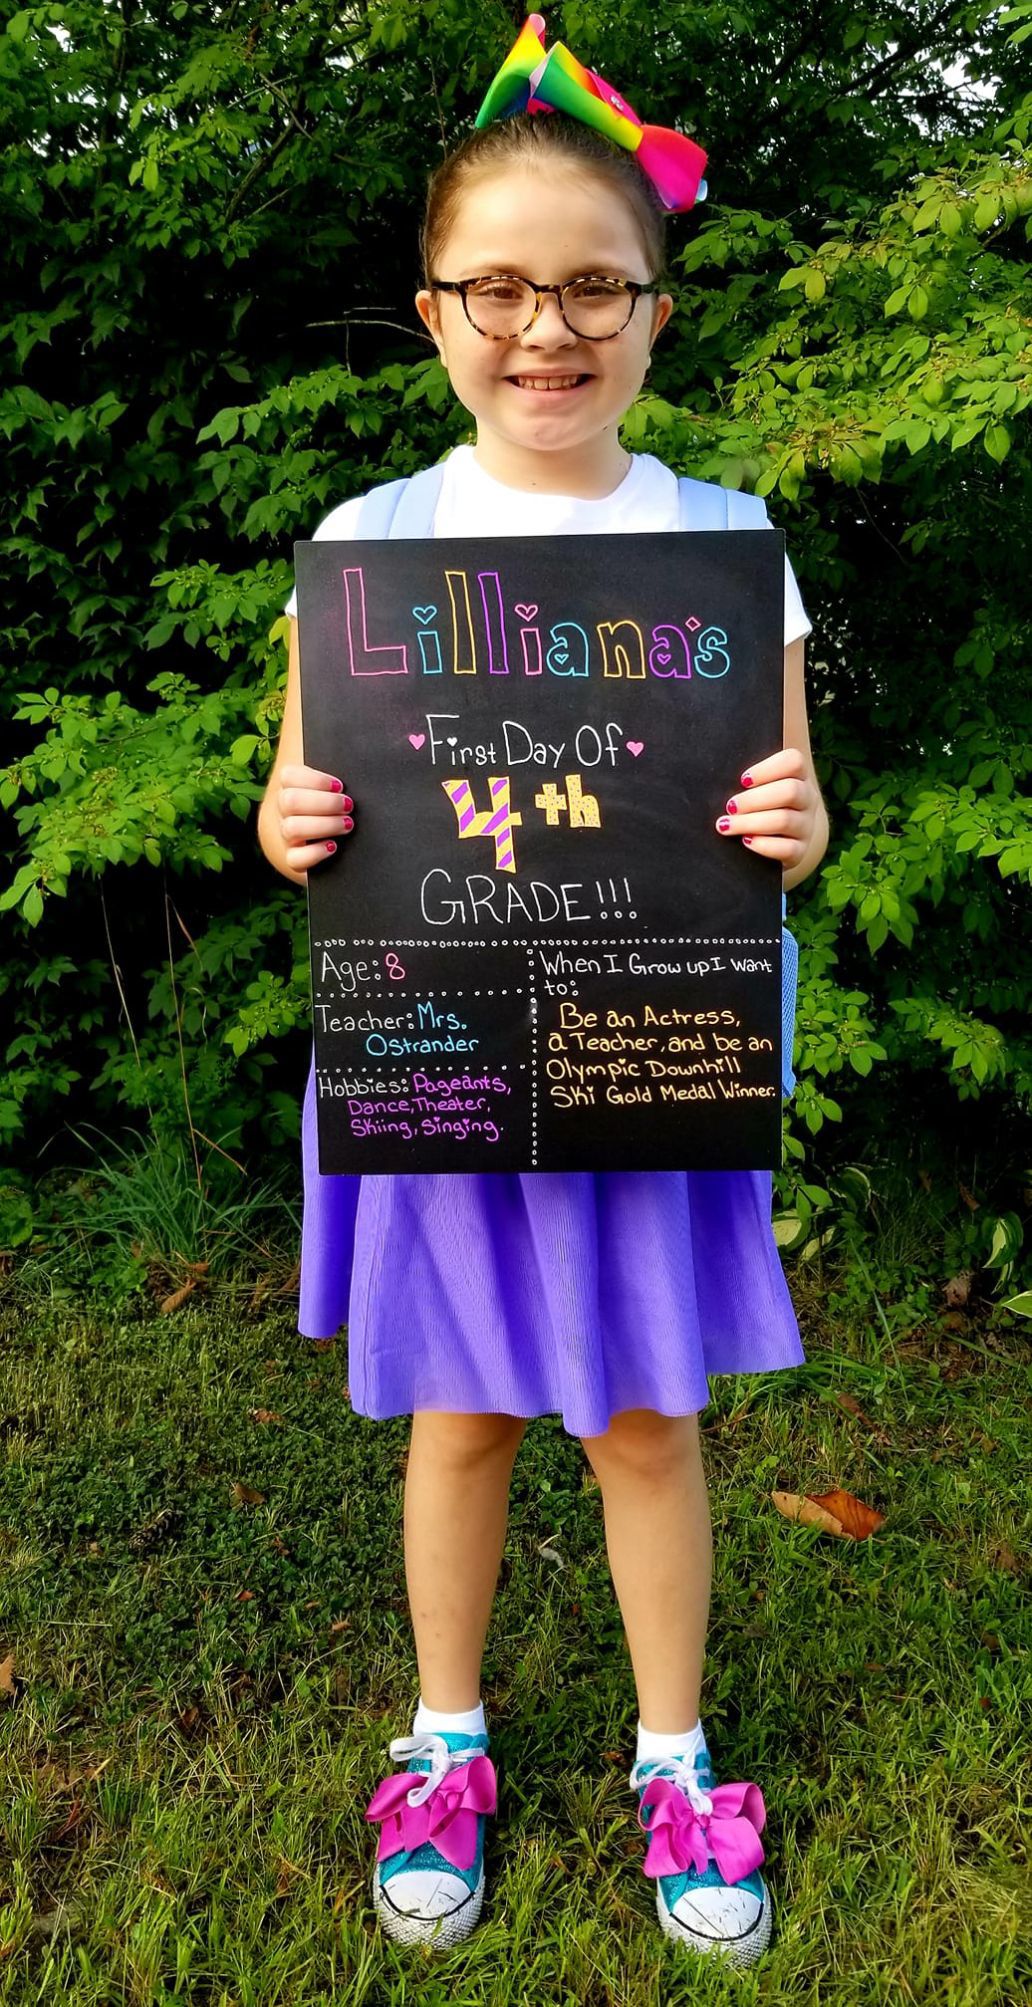 Lilliana's
First Day Of
4th
GRADE!!!
Age: 8
Teacher: Mrs.
Ostrander
Hobbies: Pageants,
Dance, Theater,
Skiing, Singing.
When I Grow up I want
to:
Be an Actress,
a Teacher, and be an
Olympic Downhill
Ski Gold Medal Winner.